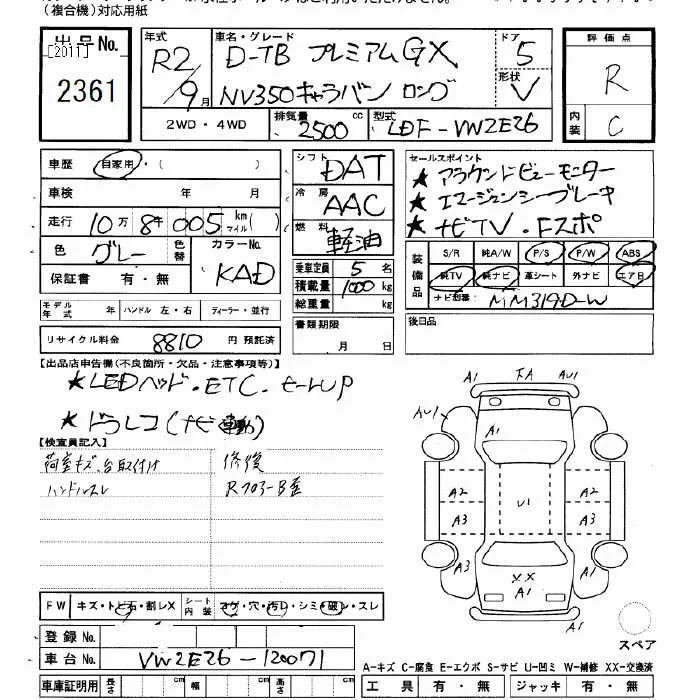 (複合機)対応用紙
出品No.
[2011]
2361
年式 R2 9月
車名・グレード D-TB プレミアムGX
NV350キャラバン ロング
ドア 5
形状 V
評価点 R
内装 C
2WD・4WD
排気量 2500 cc
型式 LDF-VW2E26
車歴 自家用・( )
車検 年 月
走行 10万8千005 km マイル( )
色 グレー 色替 カラーNo. KAD
保証書 有・無
シフト DAT
冷房 AAC
燃料 軽油
乗車定員 5 名
積載量 1000 kg
総重量 kg
セールスポイント
★ アラウンドビューモニター
★ エマージェンシーブレーキ
★ ナビTV・Fスポ
装備品 S/R 純A/W P/S P/W ABS
純TV 純ナビ 革シート 外ナビ エアB
ナビ型番 MM319D-W
モデル年式 年 ハンドル 左・右 ディーラー・並行
リサイクル料金 8810 円 預託済
書類期限 月 日
後日品
【出品店申告欄(不良箇所・欠品・注意事項等)】
★LEDヘッド・ETC・
★ドラレコ(ナビ連動)
【検査員記入】
荷室キズ、台取付け 修復
ハンドルスレ
FW キズ・トビ石・割レX シート内装 コゲ・穴・汚レ・シミ・破レ・スレ
登録 No.
車台 No. VW2E26-120071
車庫証明用 長さ cm 幅 cm 高さ cm
A1 AU1
AU1
A1
A2 A2
U1
A3 A3
A3 A1
XX
A1
スペア
A-キズ C-腐食 E-エクボ S-サビ U-凹ミ W-補修 XX-交換済
工具 有・無 ジャッキ 有・無